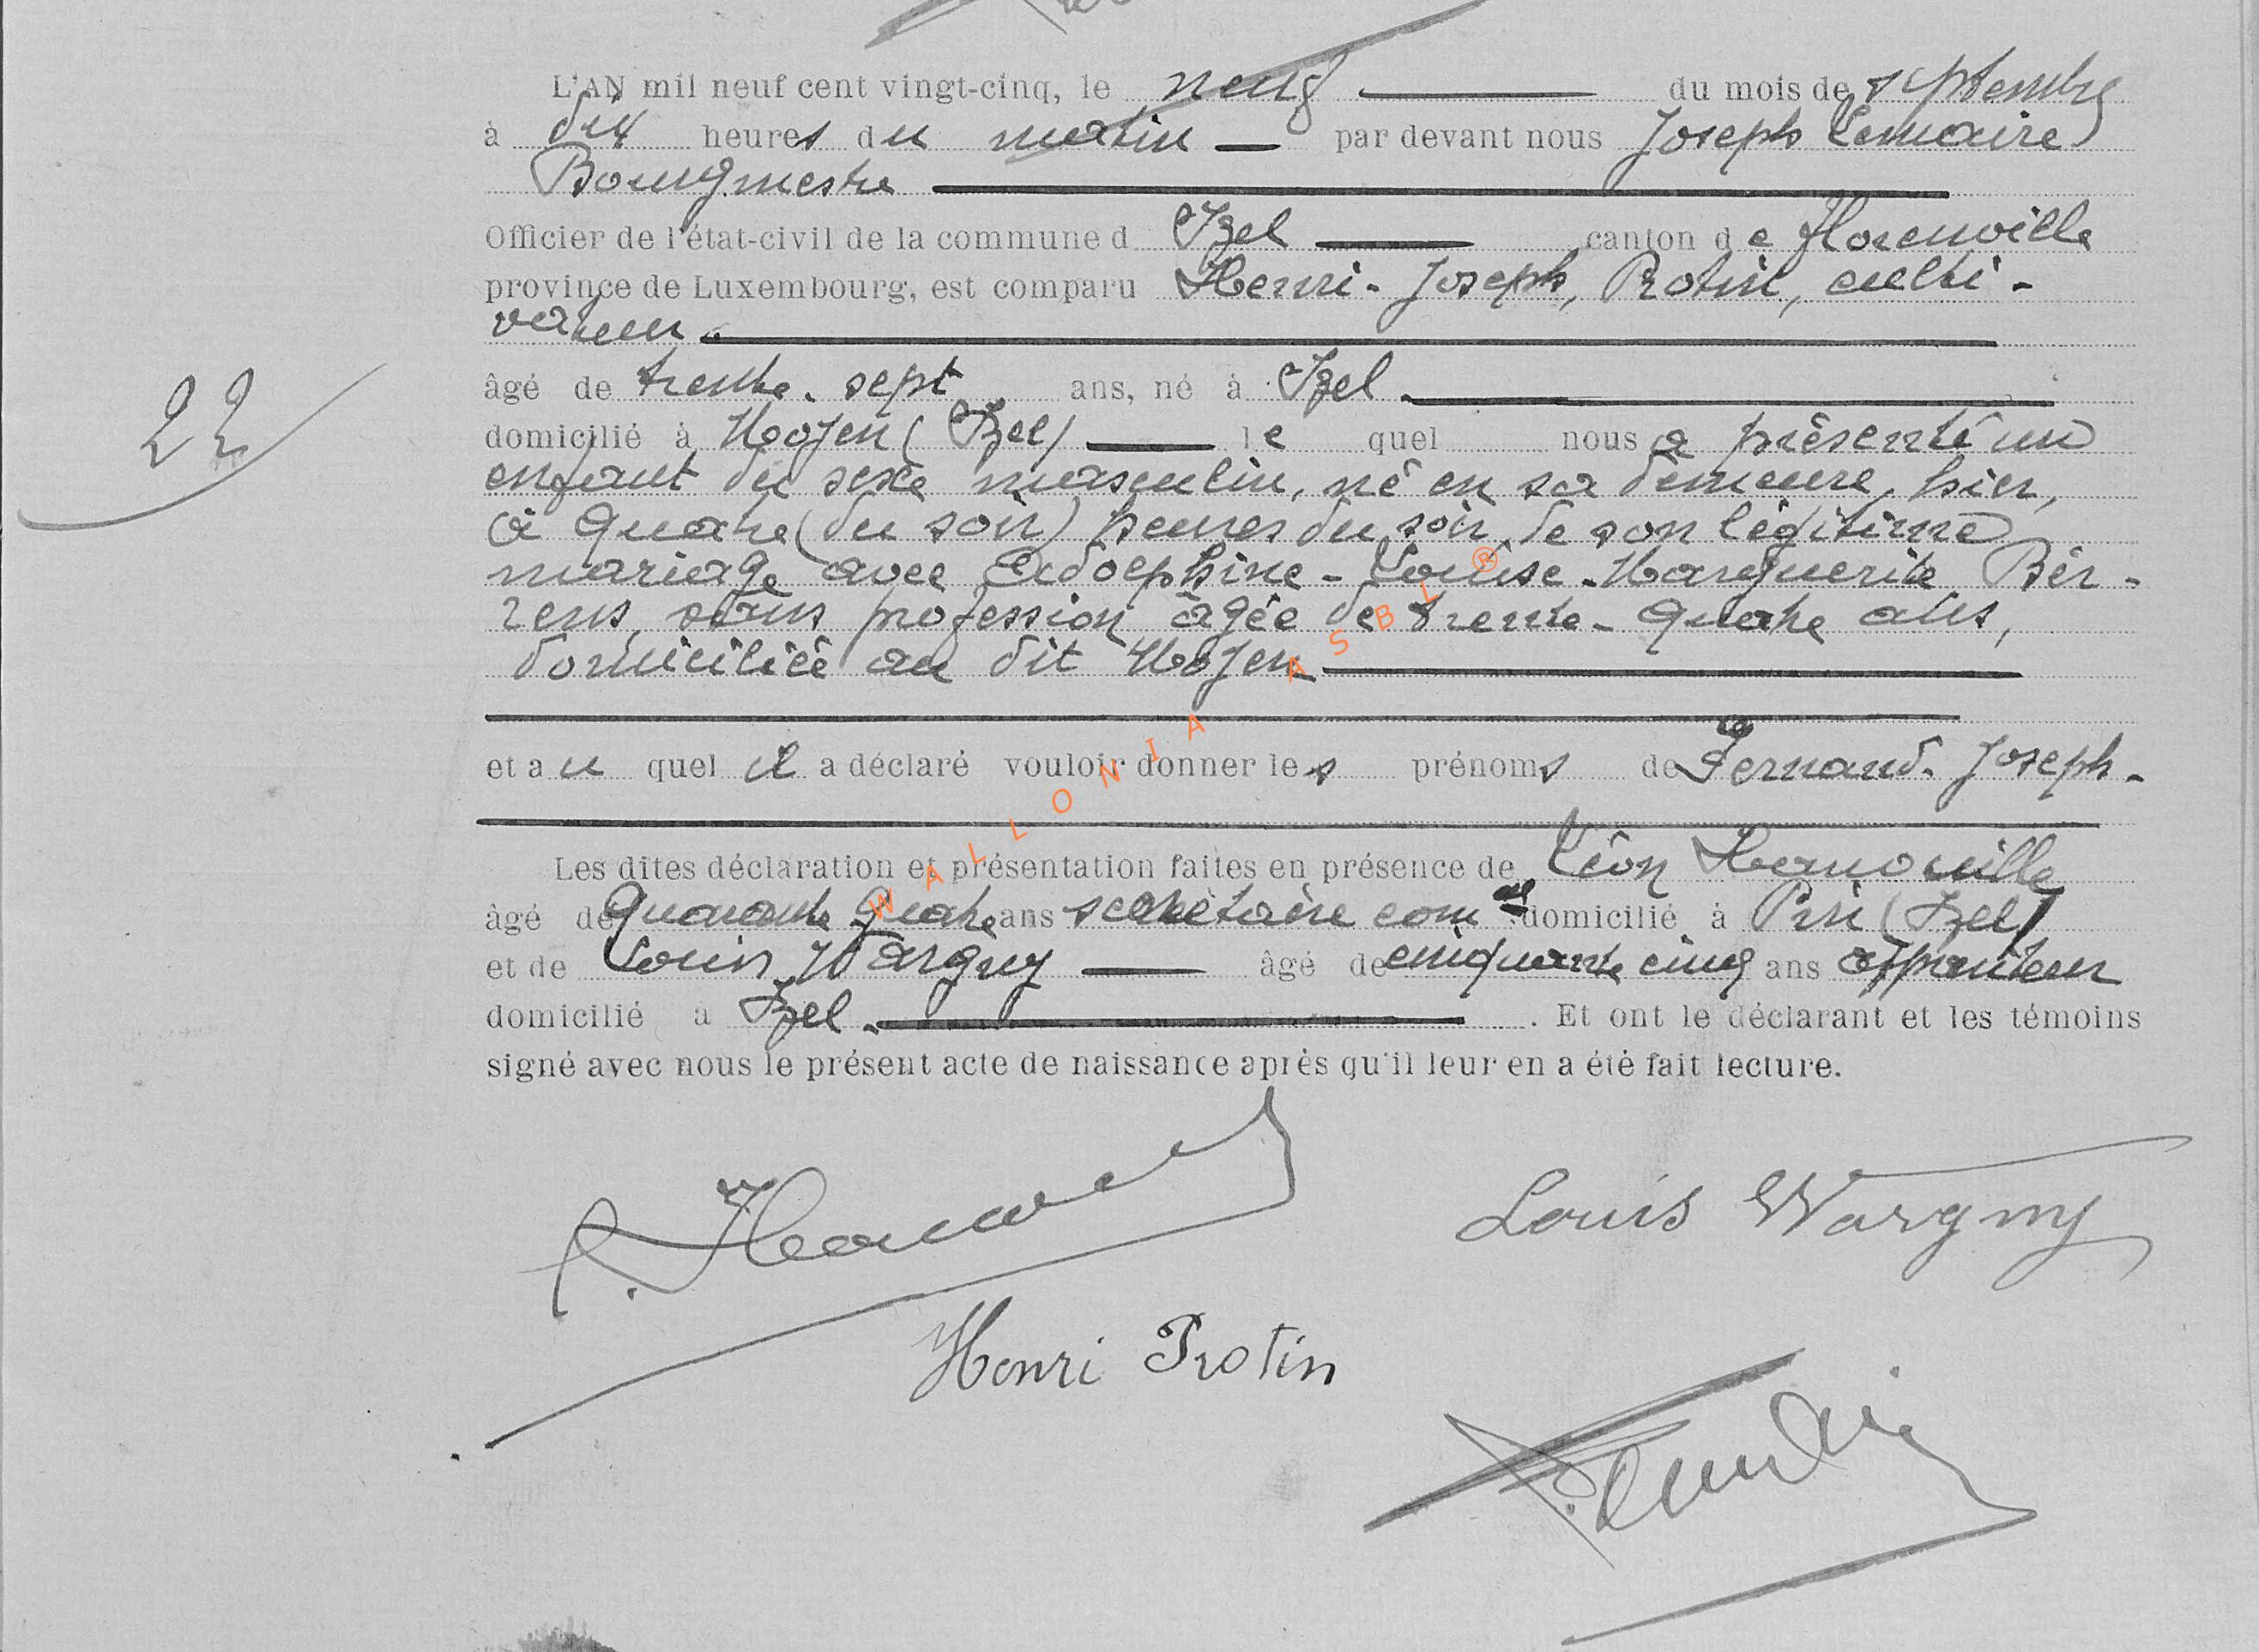 L'AN mil neuf cent vingt-cinq, le neuf du mois de septembre
à dix heures du matin par devant nous Joseph Lemaire
Bourgmestre
Officier de l'état-civil de la commune d Izel canton de Florenville
province de Luxembourg, est comparu Henri-Joseph, Protin, culti-
vateur.
âgé de trente-sept ans, né à Izel.
22
domicilié à Moyen (Izel) lequel nous a présenté un
enfant du sexe masculin, né en sa demeure, hier,
à quatre (du soir) heures du soir, de son légitime
mariage avec Adolphine-Louise-Marguerite Bér-
rens, sans profession âgée de trente-quatre ans,
domiciliée au dit Moyen
et au quel il a déclaré vouloir donner les prénoms de Fernand-Joseph-
Les dites déclaration et présentation faites en présence de Léon
âgé de quarante quatre ans secrétaire com al domicilié à Pin (Izel)
et de Louis Wargny âgé de cinquante cinq ans appariteur
domicilié à Izel. . Et ont le déclarant et les témoins
signé avec nous le présent acte de naissance après qu'il leur en a été fait lecture.
WALLONIA ASBL ®
Louis Wargny
Henri Protin